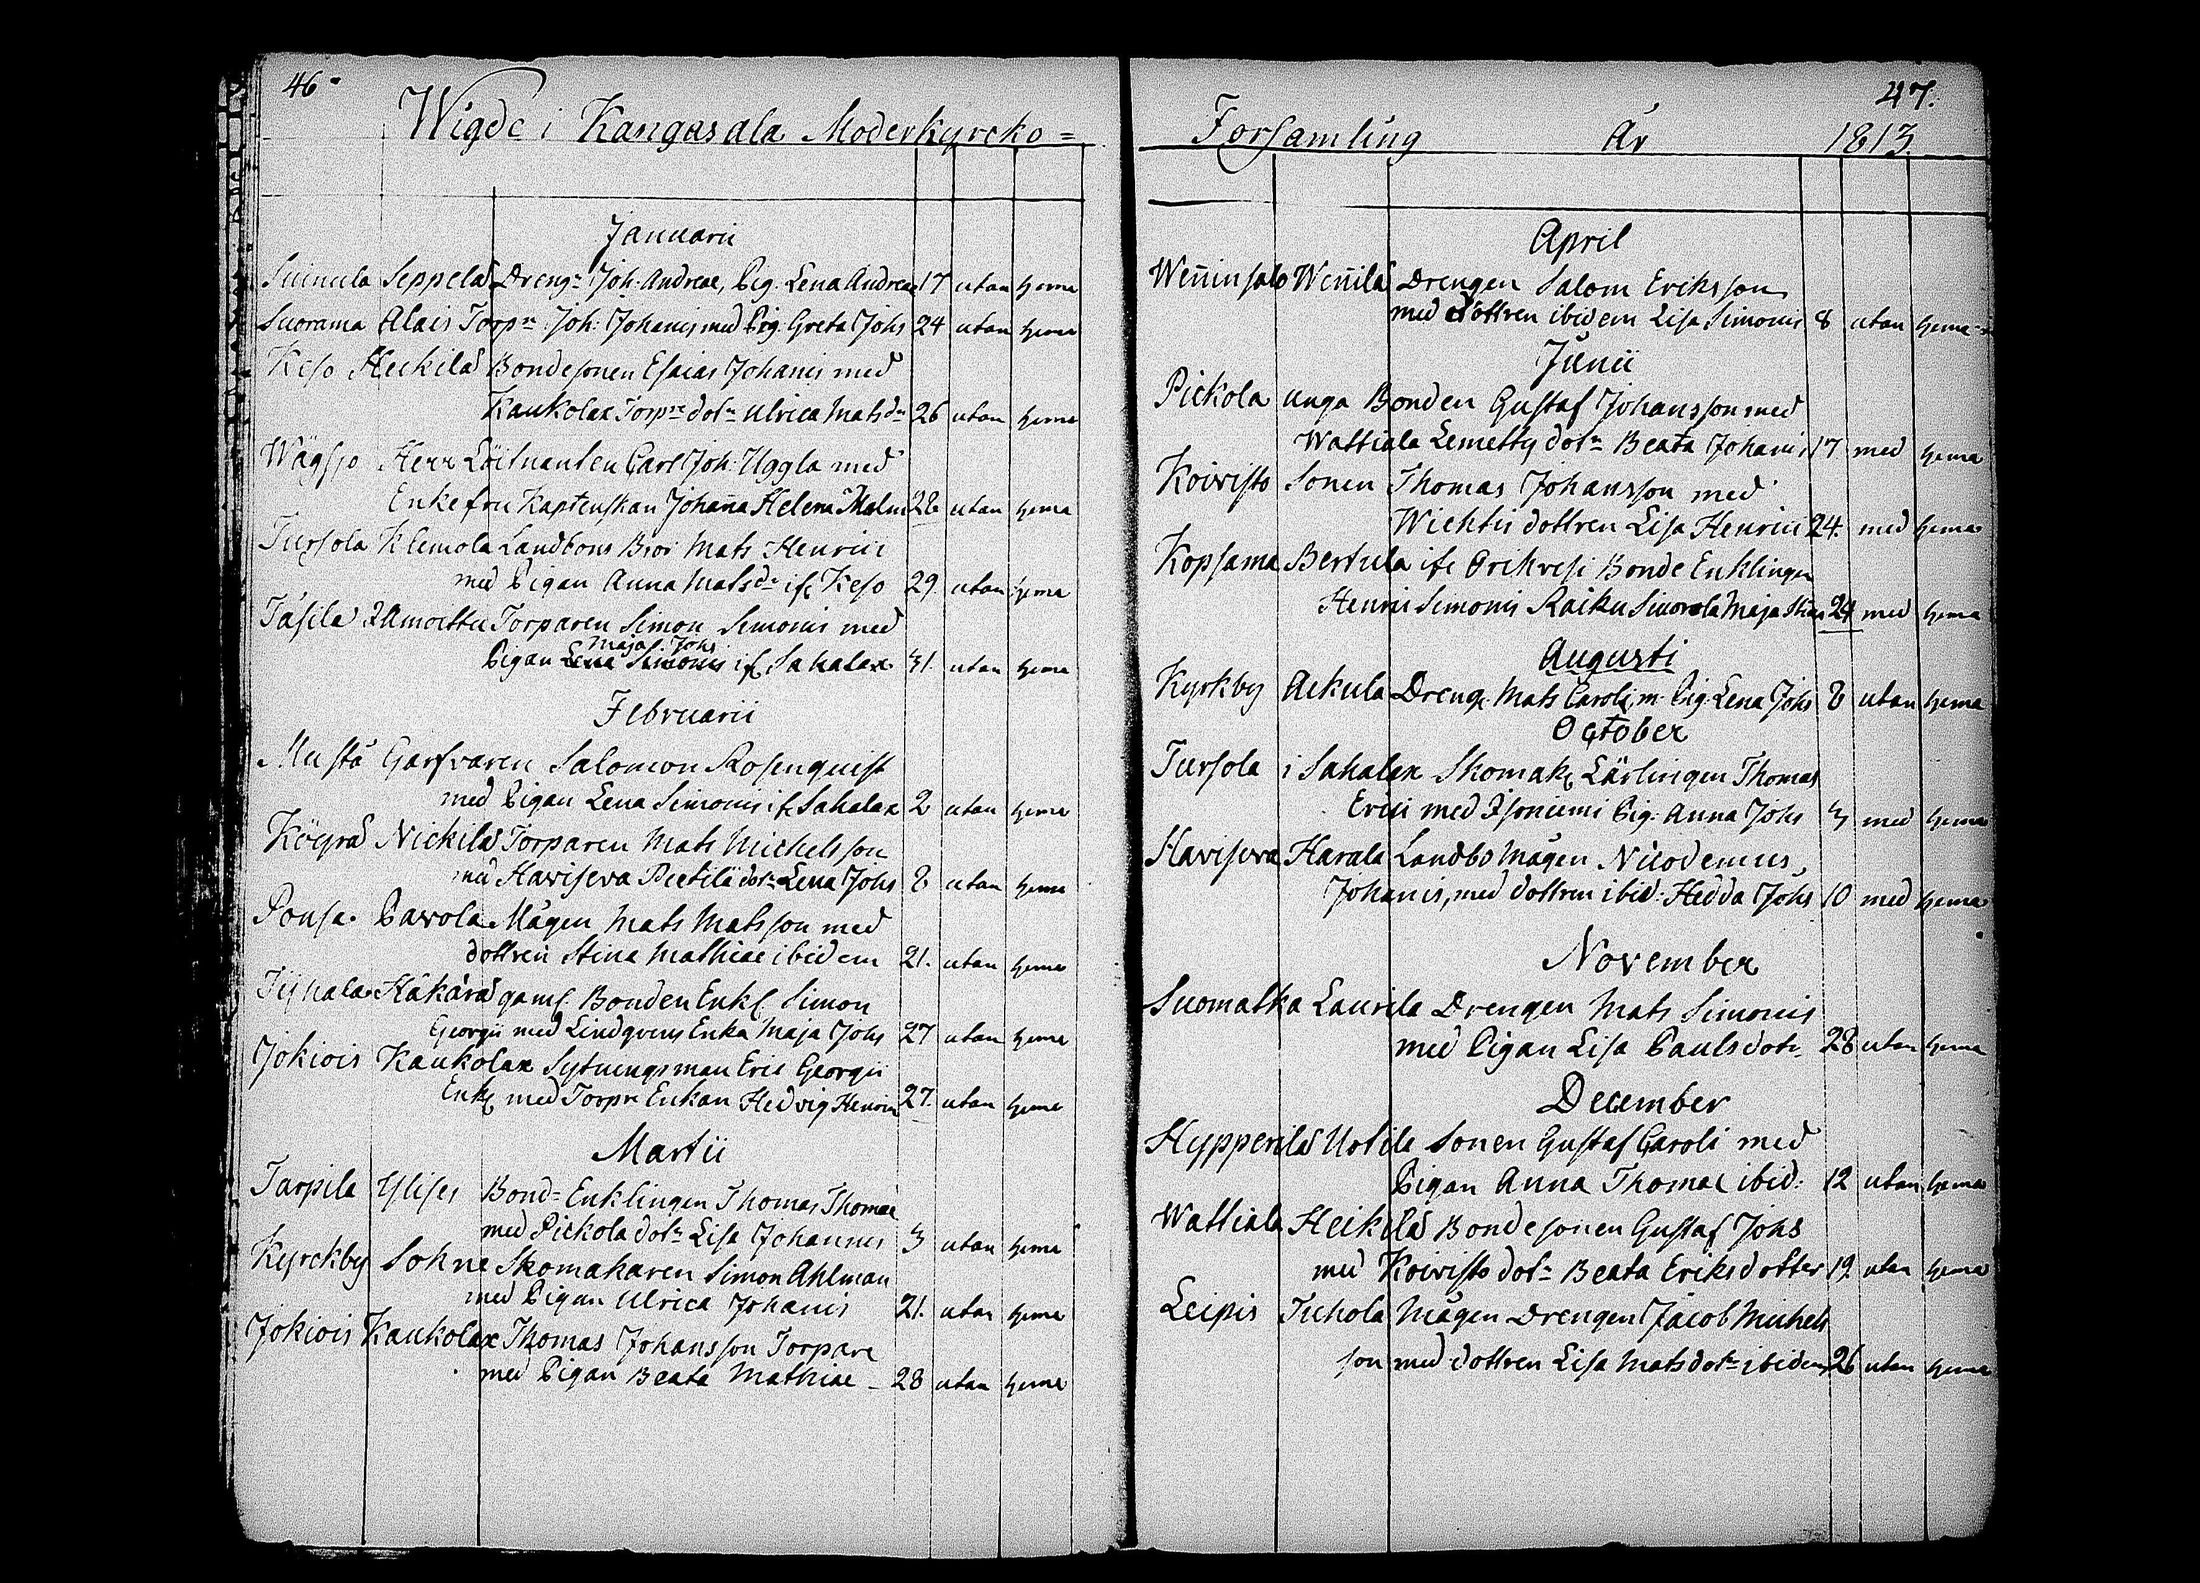 46.
Wigde i Kangasala Moderkyrcko=
Januarii
Suinula Seppelä Dreng: Joh: Andreae, Pig: Lena Andreae 17 utan hema
Suorama Alais Torpn: Joh: Johanis med Pig: Greta Johs 24 utan hema
Keso Heckilä Bondesonen Esaias Johanis med
Kaukolax Torpre dotr Ulrica Matsdr 26 utan hema
Wägsjo Herr Löitnanten Carl Joh: Uggla med
Enkefru Kaptenskan Johanna Helena Malm 28 utan hema
Tursola Klemola Landbons Bror Mats Henrici
med Pigan Anna Matsdr if: Keso 29 utan hema
Tasila Torparen Simon Simonis med
Maja Johs
Pigan Lena Simonis if Sahalax 31. utan hema
Februarii
Musta Garfvaren Salomon Rosenquist
med Pigan Lena Simonis if Sahalax 2 utan hema
Köyrä Nickilä Torparen Mats Michelsson
med Haviseva Peetilä dotr Lena Johs 8 utan hema
Ponsa Pavola Mågen Mats Matsson med
dottren Stina Mathiae ibidem 21. utan hema
Tyhala Håkårä gaml. Bonden Enkl Simon
Georgii med Lindqvens Enka Maja Johs 27 utan hema
Jokiois Kaukolax Sytningsman Eric Georgii
Enkl med Torpr Enkan Hedvig Henrici 27. utan hema
Martii
Tarpila Ylises Bond= Enklingen Thomas Thomae
med Pickola dotr Lisa Johannis 3 utan hema
Kyrckby Sohne Skomakaren Simon Ahlman
med Pigan Ulrica Johanis 21. utan hema
Jokiois Kaukolax Thomas Johansson Torpare
med Pigan Beata Mathiae 28 utan hema
47.
Forsamling År 1813.
April
Wenninsalo Wennilä Drengen Salom Eriksson
med dottren ibidem Lisa Simonis 8 utan hema
Junii
Pickola unga Bonden Gustaf Johansson med
Wattiala Lemetty dotr Beata Johanis 17 med hema
Koivisto Sonen Thomas Johansson med
Wichtis dottren Lisa Henrici 24. med hema
Kopsama Bertula if: Orihvesi Bonde Enklingen
Henric Simonis Raiku Maja 24 med hema
Augusti
Kyrkby Aekula Dreng: Mats Caroli, m: Pig: Lena Johs 8 utan hema
October
Tursola i Sahalax Skomak: Lärlingen Thomas
Erici med Isoniemi Pig: Anna Johs 3 med hema
Haviseva Harala Landbo Mågen Nicodemus
Johanis, med dottren ibid: Hedda Johs 10 med hema
November
Suomatka Laurila Drengen Mats Simonis
med Pigan Lisa Paulsdotr 28 utan hema
December
Hypperilä Uotila Sonen Gustaf Caroli med
Pigan Anna Thomae ibid: 12 utan hema
Wattiala Heikilä Bondesonen Gustaf Johs
med Koivisto dotr Beata Eriksdotter 19. utan hema
Leipis Tuhola Mågen Drengen Jacob Michels
son med dottren Lisa Matsdotr ibidem 26 utan hema